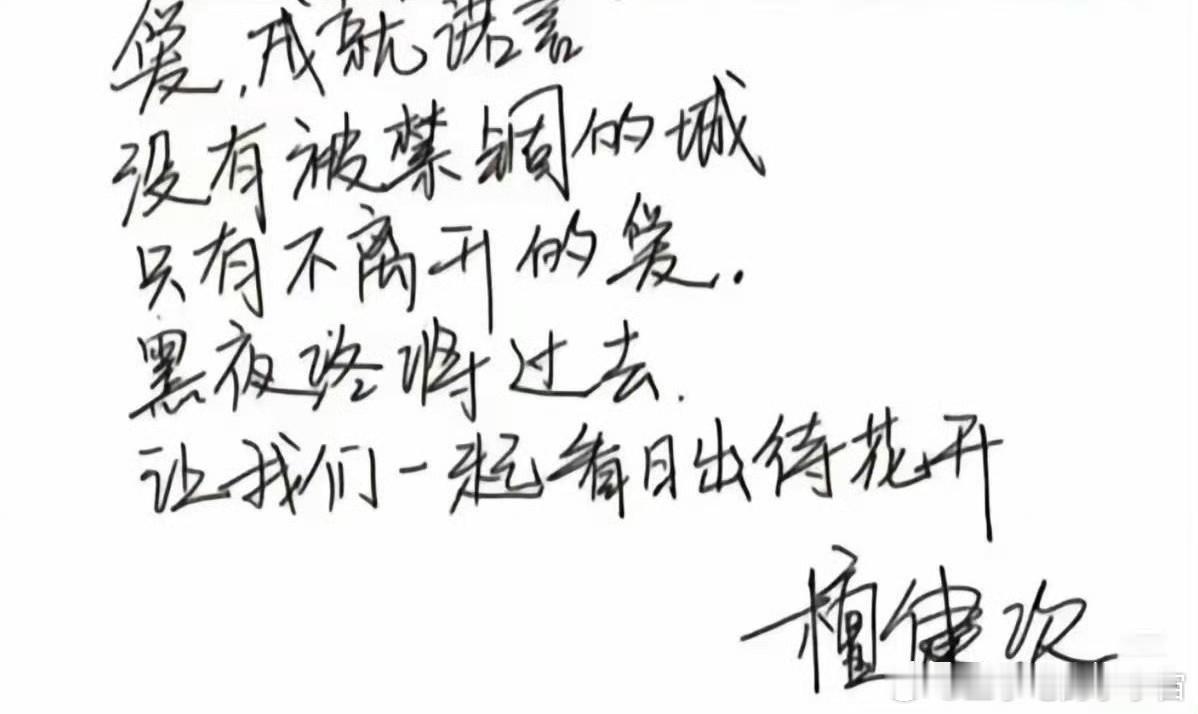 爱，成就诺言
没有被禁锢的城
只有不离开的爱.
黑夜终将过去.
让我们一起看日出待花开
檀健次